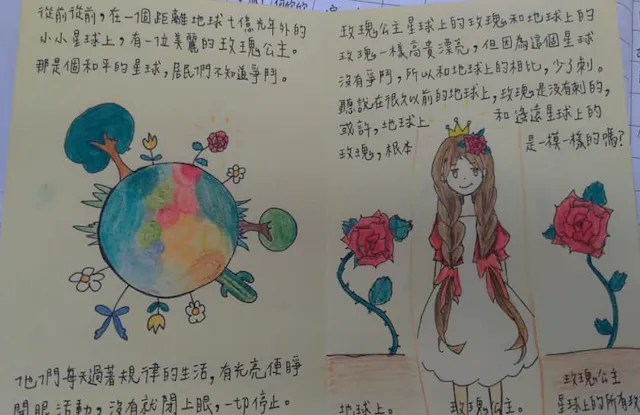 從前從前，在一個距離地球七億光年外的
小小星球上，有一位美麗的玫瑰公主。
那是個和平的星球，居民們不知道爭鬥。
他們每天過著規律的生活，有光亮便睜
開眼活動，沒有就閉上眼，一切停止。
玫瑰公主星球上的玫瑰和地球上的
玫瑰一樣高貴漂亮，但因為這個星球
沒有爭鬥，所以和地球上的相比，少了刺。
聽說在很久以前的地球上，玫瑰是沒有刺的，
或許，地球上 和遙遠星球上的
玫瑰，根本 是一模一樣的嗎？
地球上。
玫瑰公主。
玫瑰公主
星球上的所有玫